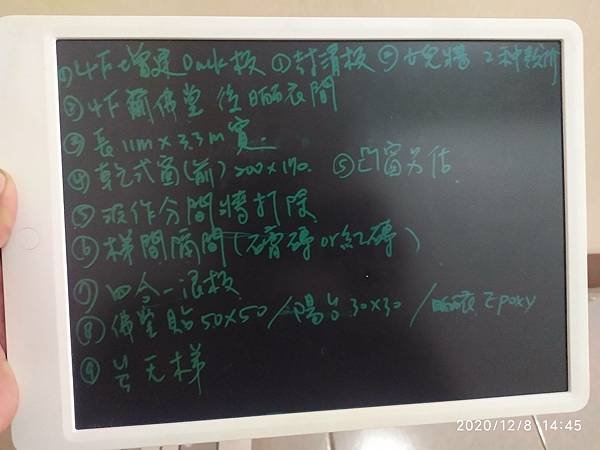 ①4F增建Deck板 ①封清板 ②女兒牆 2种報价
②4F前佛堂 後晒衣間
③長11m×3.3m寬
④乾式窗(前)200×170. ⑤凸窗另估
⑤求作分間牆打除
⑥梯間隔間(磚or紅磚)
⑦四合一浪板
⑧佛堂貼50×50/陽台30×30/晒衣Epoxy
⑨天梯
2020/12/8 14:45